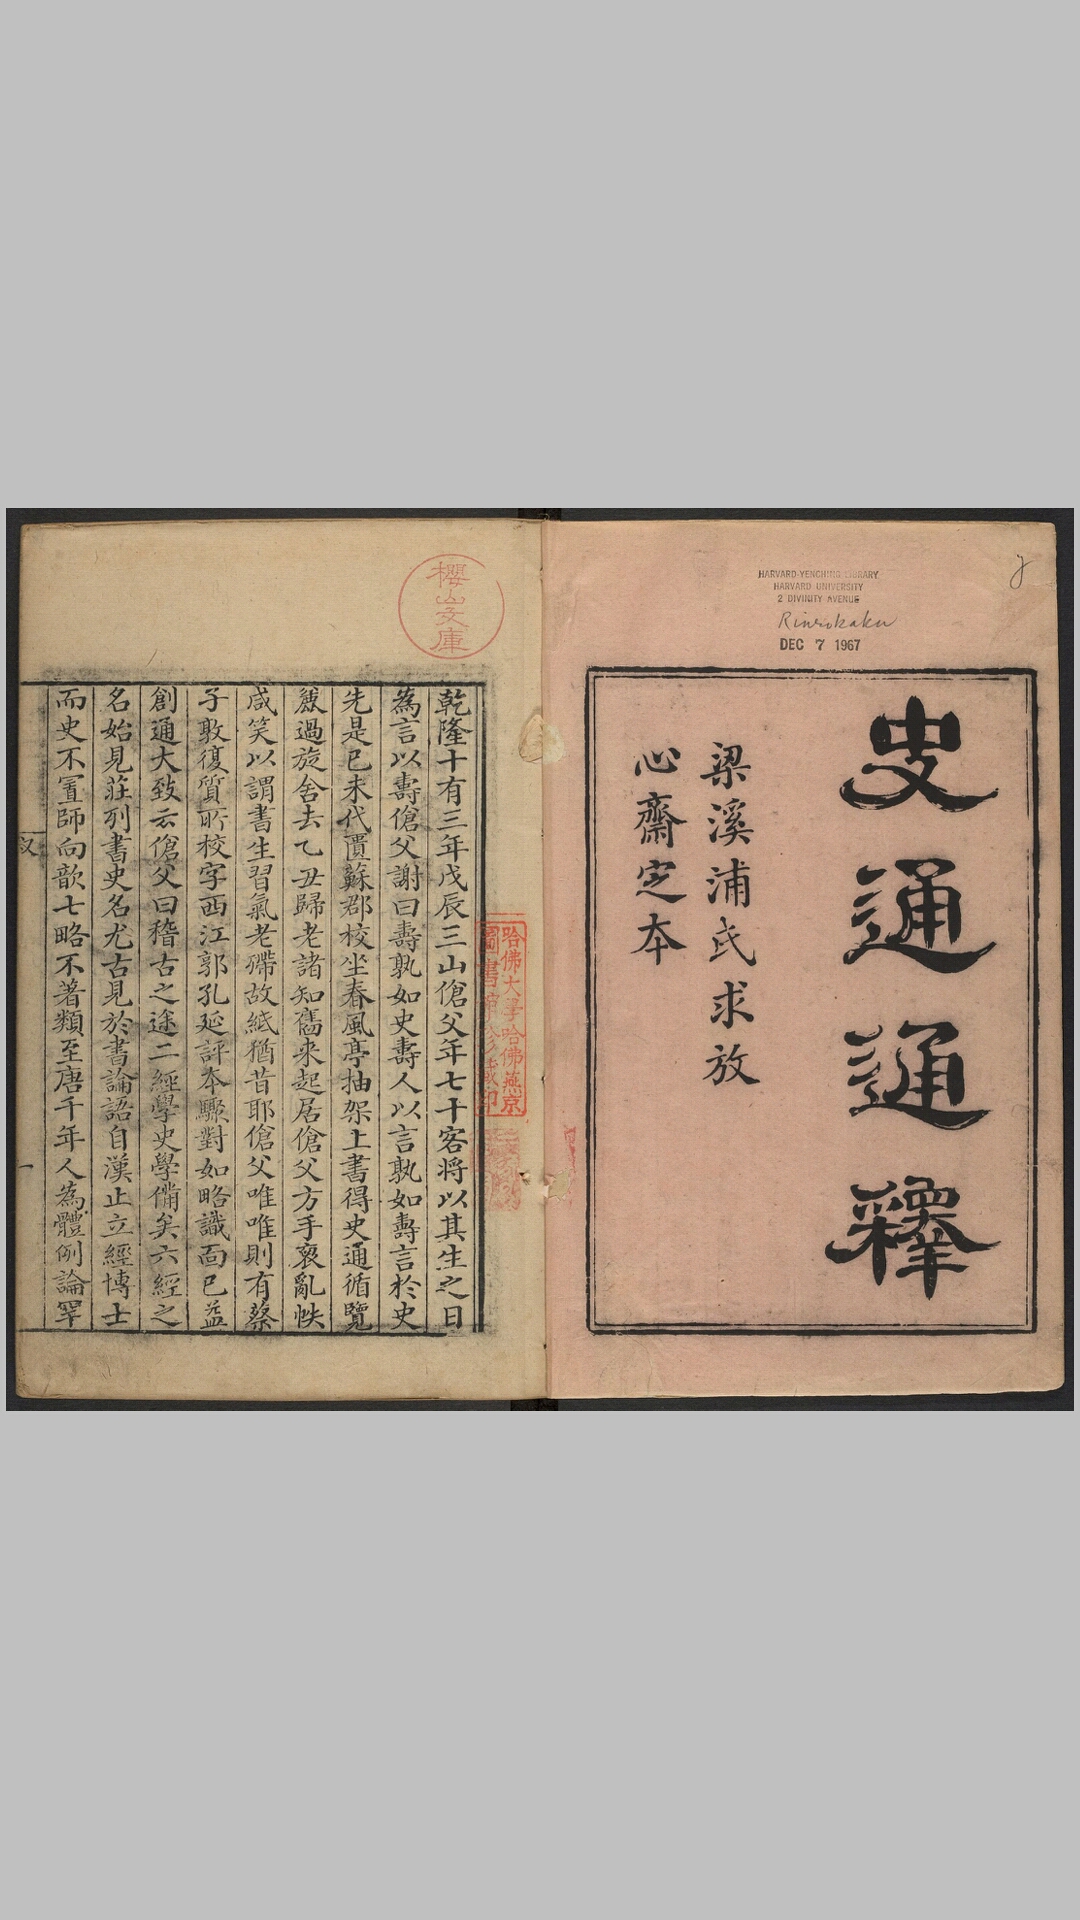 HARVARD-YENCHING LIBRARY
HARVARD UNIVERSITY
2 DIVINITY AVENUE
Rinrokaku
DEC 7 1967
史通通釋
梁溪浦氏求放
心齋定本
櫻山文庫
哈佛大學哈佛燕京
圖書館珍藏印
乾隆十有三年戊辰三山傖父年七十客將以其生之日
為言以壽傖父謝曰壽孰如史壽人以言孰如壽言於史
先是己未代匱蘇郡校坐春風亭抽架上書得史通循覽
粗過旋舍去乙丑歸老諸知舊来起居傖父方手裒亂帙
咸笑以謂書生習氣老殢故紙猶昔耶傖父唯唯則有蔡
子敦復質所校字西江郭孔延評本驟對如略識面已益
創通大致云傖父曰稽古之途二經學史學備矣六經之
名始見莊列書史名尤古見於書論語自漢止立經博士
而史不置師向歆七略不著類至唐千年人為體例論罕